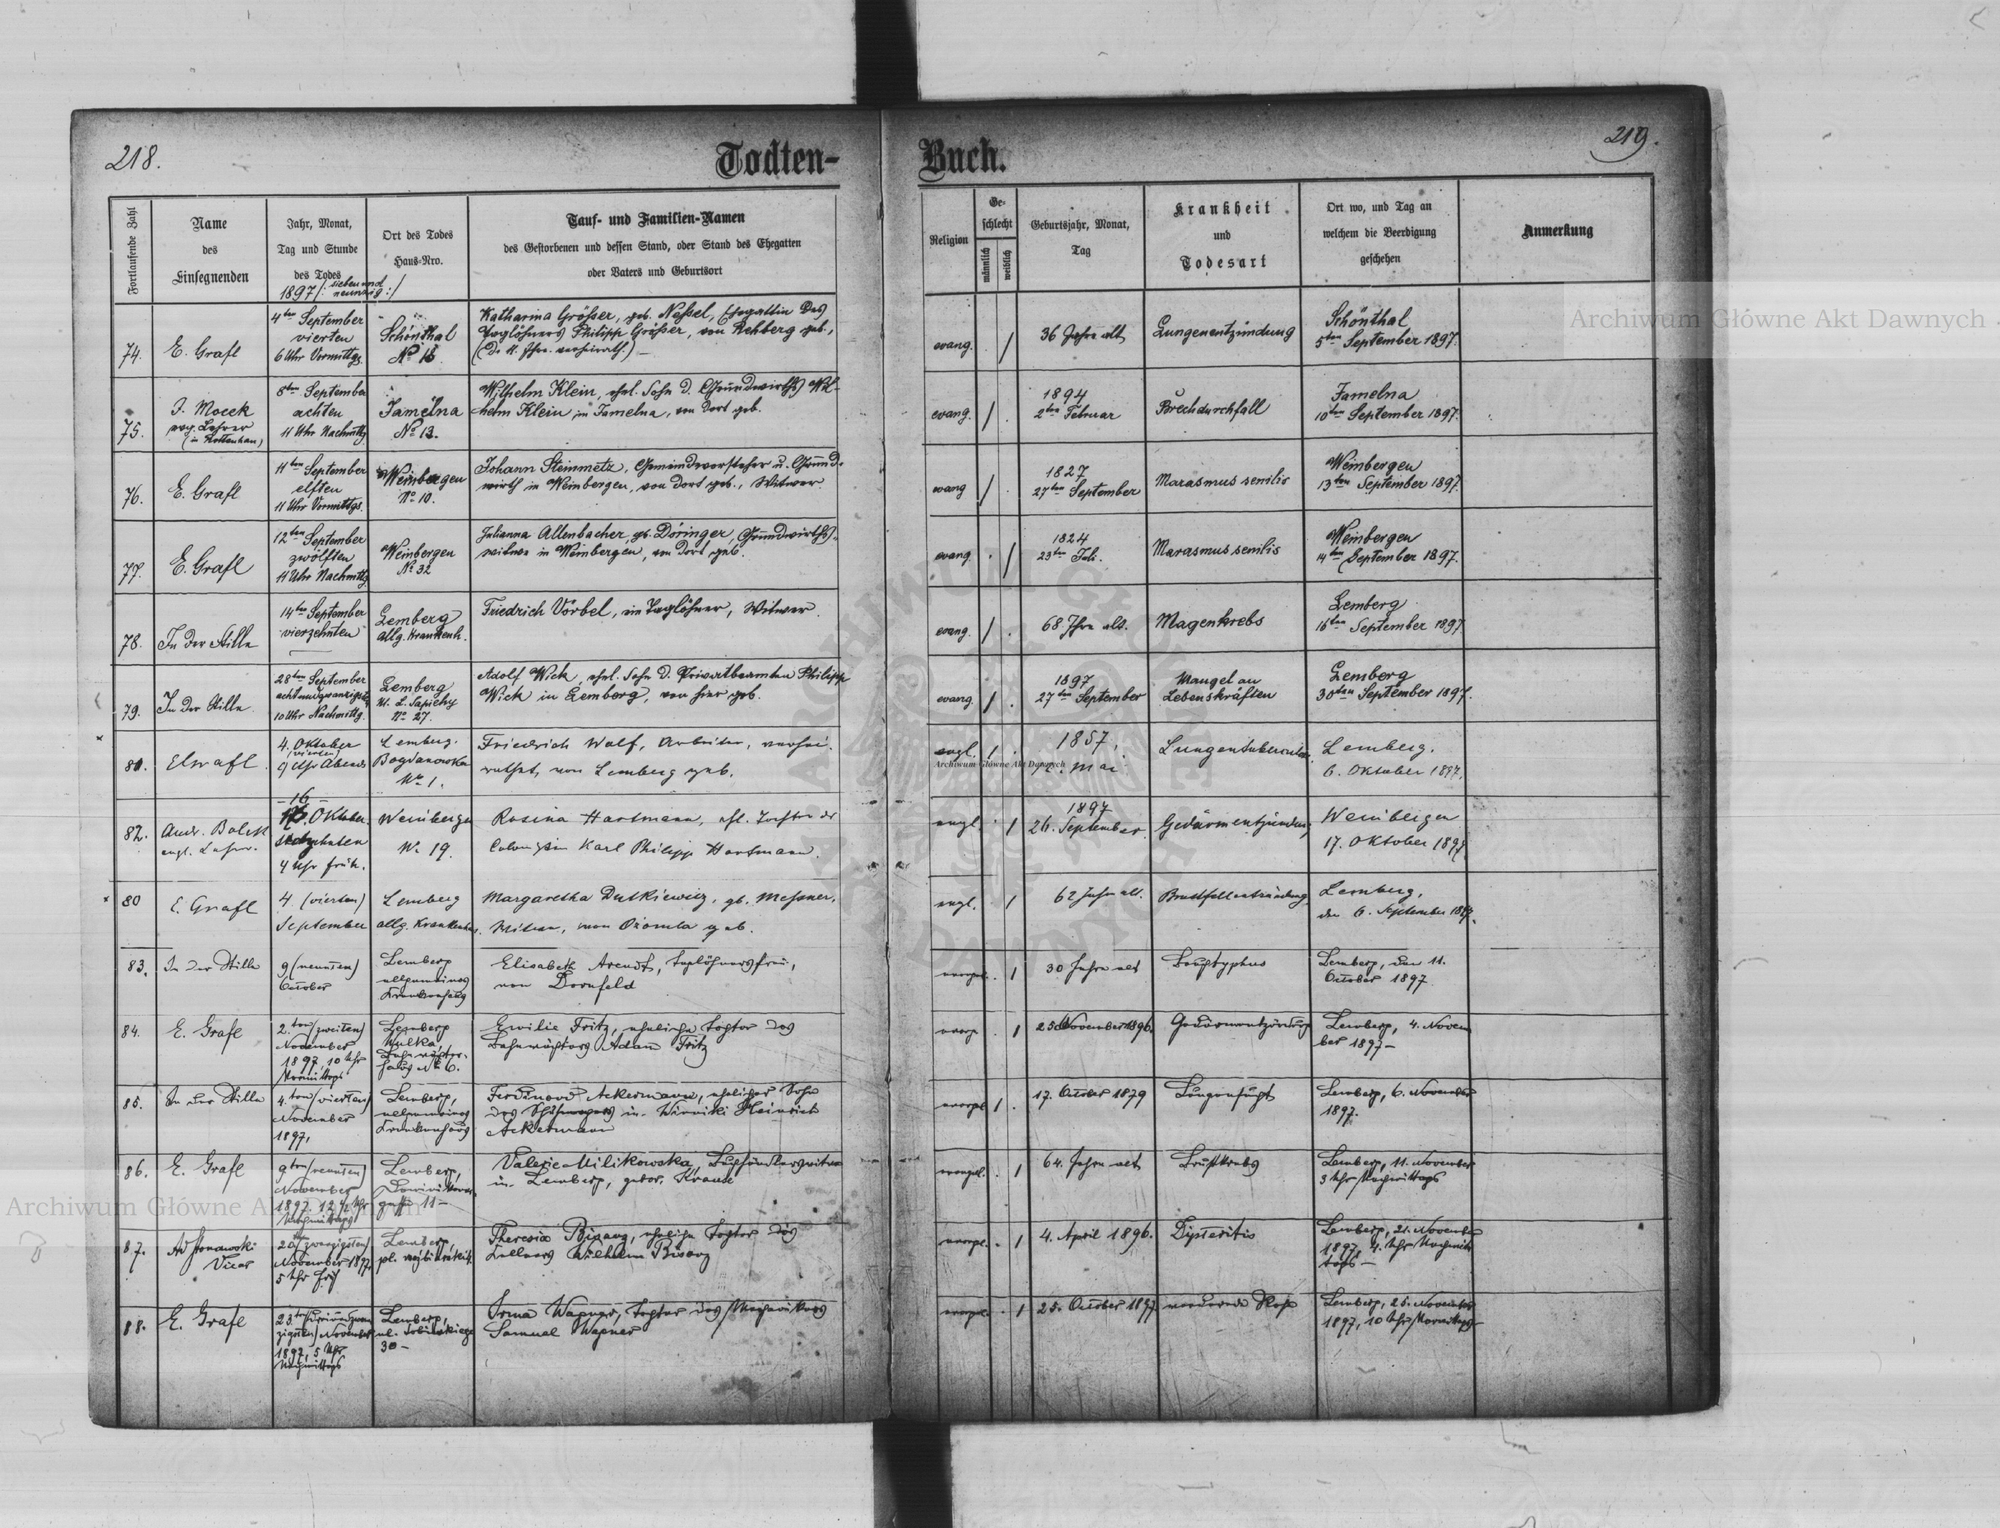 218.
Todten-
Buch.
219.
Fortlaufende Zahl
Name
des
Einsegnenden
Jahr, Monat,
Tag und Stunde
des Todes
1897 /: sieben und
neunzig :/
Ort des Todes
Haus-Nro.
Tauf- und Familien-Namen
des Gestorbenen und dessen Stand, oder Stand des Ehegatten
oder Vaters und Geburtsort
Religion
Ge-
schlecht
männlich
weiblich
Geburtsjahr, Monat,
Tag
Krankheit
und
Todesart
Ort wo, und Tag an
welchem die Beerdigung
geschehen
Anmerkung
74.
E. Grafl
4ten September
vierten
6 Uhr Vormittgs.
Schönthal
No 16
Katharina Größer, geb. Nessel, Ehegattin des
Taglöhners Philipp Größer, von Rehberg geb.,
evang. /
36 Jahre alt
Lungenentzündung
Schönthal
5ten September 1897.
75.
J. Mocek
evg. Lehrer
(in Rottenhan)
8ten September
achten
11 Uhr Nachmttg.
Jamelna
No 13.
Wilhelm Klein, ehel. Sohn d. Grundwirths Wil-
helm Klein in Jamelna, von dort geb.
evang. / .
1894
2ten Februar
Brechdurchfall
Jamelna
10ten September 1897.
76.
E. Grafl
11ten September
elften
11 Uhr Vormttgs.
Weinbergen
No 10.
Johann Steinmetz, Gemeindevorsteher u. Grund-
wirth in Weinbergen, von dort geb., Witwer
evang / .
1827
27ten September
Marasmus senilis
Weinbergen
13ten September 1897.
77.
E. Grafl
12ten September
zwölften
11 Uhr Nachmttg
Weinbergen
No 32
Julianna Allenbacher, gb. Döringer, Grundwirths-
witwe in Weinbergen, von dort geb.
evang. . /
1824
23ten Juli.
Marasmus senilis
Weinbergen
14ten September 1897.
78.
In der Stille
14ten September
vierzehnten
Lemberg
allg. Krankenh.
Friedrich Vörbel, ein Taglöhner, Witwer.
evang. / .
68 Jhre alt.
Magenkrebs
Lemberg
16ten September 1897
79.
In der Stille
28ten September
achtundzwanzigsten
10 Uhr Nachmittg.
Lemberg
ul. L. Sapiehy
No 27.
Adolf Wick, ehel. Sohn d. Privatbeamten Philipp
Wick in Lemberg, von hier geb.
evang. / .
1897
27ten September
Mangel an
Lebenskräften
Lemberg
30ten September 1897.
81.
E. Grafl
4. Oktober
(vierten)
9 Uhr Abends
Lemberg.
Bogdanowka
No 1.
Friedrich Wolf, Arbeiter, verhei-
rathet, von Lemberg geb.
evgl. / .
1857,
Mai
Lungentuberculose
Lemberg.
6. Oktober 1897.
82.
Andr. Bolek
evgl. Lehrer.
16
Oktober
sechzehnten
4 Uhr früh.
Weinbergen
No 19.
Rosina Hartmann, ehl. Tochter der
Colonisten Karl Philipp Hartmann.
evgl. . /
1897
26. September.
Gedärmentzündung
Weinbergen
17. Oktober 1897.
80
E. Grafl
4 (vierten)
September
Lemberg
allg. Krankenhaus
Margaretha Dutkiewicz, gb. Messner,
Witwe, von Ožomla geb.
evgl. /
62 Jahre alt.
Brustfellentzündung
Lemberg,
den 6. September 1897.
83.
In der Stille
9 (neunten)
October
Lemberg
allgemeines
Krankenhaus
Elisabeth Arendt, Taglöhnersfrau,
von Dornfeld
evangl. . /
30 Jahre alt
Bauchtyphus
Lemberg, den 11.
October 1897
84.
E. Grafl
2.ten (zweiten)
November
1897, 10 Uhr
Vormittags
Lemberg
Wulka,
Bahnwächter-
haus No 6.
Emilie Fritz, eheliche Tochter des
Bahnwächters Adam Fritz
evang . /
25 November 1896.
Gedärmentzündung
Lemberg, 4. Novem
ber 1897 –
85.
In der Stille
4.ten (vierten)
November
1897,
Lemberg,
allgemeines
Krankenhaus
Ferdinand Ackermann, ehelicher Sohn
des Schuhmachers in Winniki Heinrich
Ackermann
evangl / .
17. October 1879
Lungensucht
Lemberg, 6. November
1897.
86.
E. Grafl
9ten (neunten)
November
1897. 12 1/2 Uhr
Nachmittags
Lemberg,
Dominikaner-
gasse 11 –
Valerie Milikowska, Buchhändlerswitwe
in Lemberg, gebor. Krause
evangel. . /
64. Jahre alt
Brustkrebs
Lemberg, 11. November
3 Uhr Nachmittags
87.
Vicar
20ten (zwanzigsten)
November 1897,
5 Uhr früh
Lemberg,
Theresia Bisanz, eheliche Tochter des
Kellners Wilhelm Bisanz
evangl. . /
4. April 1896.
Dipteritis
Lemberg, 21. November
1897, 4. Uhr Nachmit
tags –
88.
E. Grafl
23.ten (dreiundzwan
zigsten) November
1897, 5 Uhr
Nachmittags
Lemberg,
30 –
Irma Wagner, Tochter des Mechanikers
Samuel Wagner
evangel. . /
25. October 1897
Lemberg, 25. November
1897, 10 Uhr Vormittags
Archiwum Główne Akt Dawnych
Archiwum Główne Akt Dawnych
Archiwum Główne Akt Dawnych